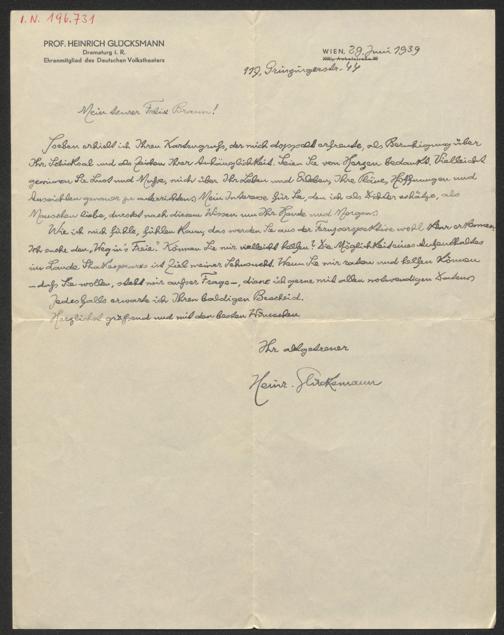 I.N. 196.731
PROF. HEINRICH GLÜCKSMANN
Dramaturg i. R.
Ehrenmitglied des Deutschen Volkstheaters
WIEN, 29. Juni 1939
119, Grinzingerstr. 44
Mein teurer Felix Braun!
Soeben erhielt ich Ihren Kartengruß, der mich doppelt erfreute, als Beruhigung über
Ihr Schicksal und als Zeichen Ihrer Anhänglichkeit. Seien Sie von Herzen bedankt. Vielleicht
gewinnen Sie Lust und Muße, mich über Ihr Leben und Erleben, Ihre Pläne, Hoffnungen und
Aussichten genauer zu unterrichten. Mein Interesse für Sie, den ich als Dichter schätze, als
Menschen liebe, dürstet nach diesem Wissen um Ihr Heute und Morgen.
Wie ich mich fühle, fühlen kann, das werden Sie aus der Fernperspektive wohl klar erkennen.
Ich suche den „Weg ins Freie". Können Sie mir vielleicht helfen? Die Möglichkeit eines Aufenthaltes
im Lande Shakespeares ist Ziel meiner Sehnsucht. Wenn Sie mir raten und helfen können
– daß Sie wollen, steht mir außer Frage –, diene ich gerne mit allen notwendigen Daten.
Jedesfalls erwarte ich Ihren baldigen Bescheid.
Herzlichst grüßend und mit den besten Wünschen
Ihr altgetreuer
Heinr. Glücksmann